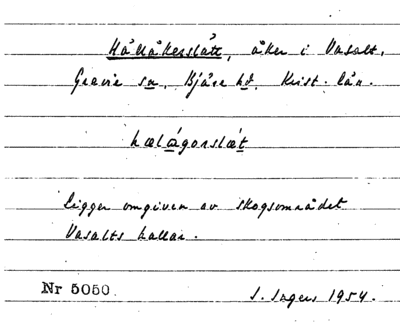 Hålåkerslätt, åker i Vasalt,
Grevie sn, Bjäre hd, Krist. län.
hælágorslǽt
Ligger omgiven av skogsområdet
Vasalts hallar.
Nr 5050. I. Ingers 1954.